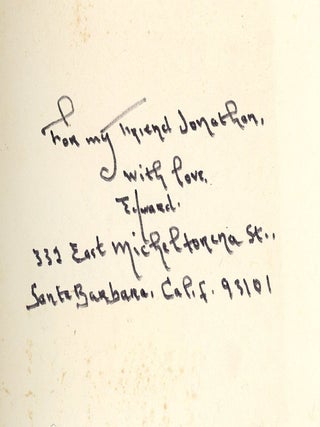 For my friend Jonathon,
with love.
Edward.
332 East Micheltorena St.,
Santa Barbara, Calif. 93101